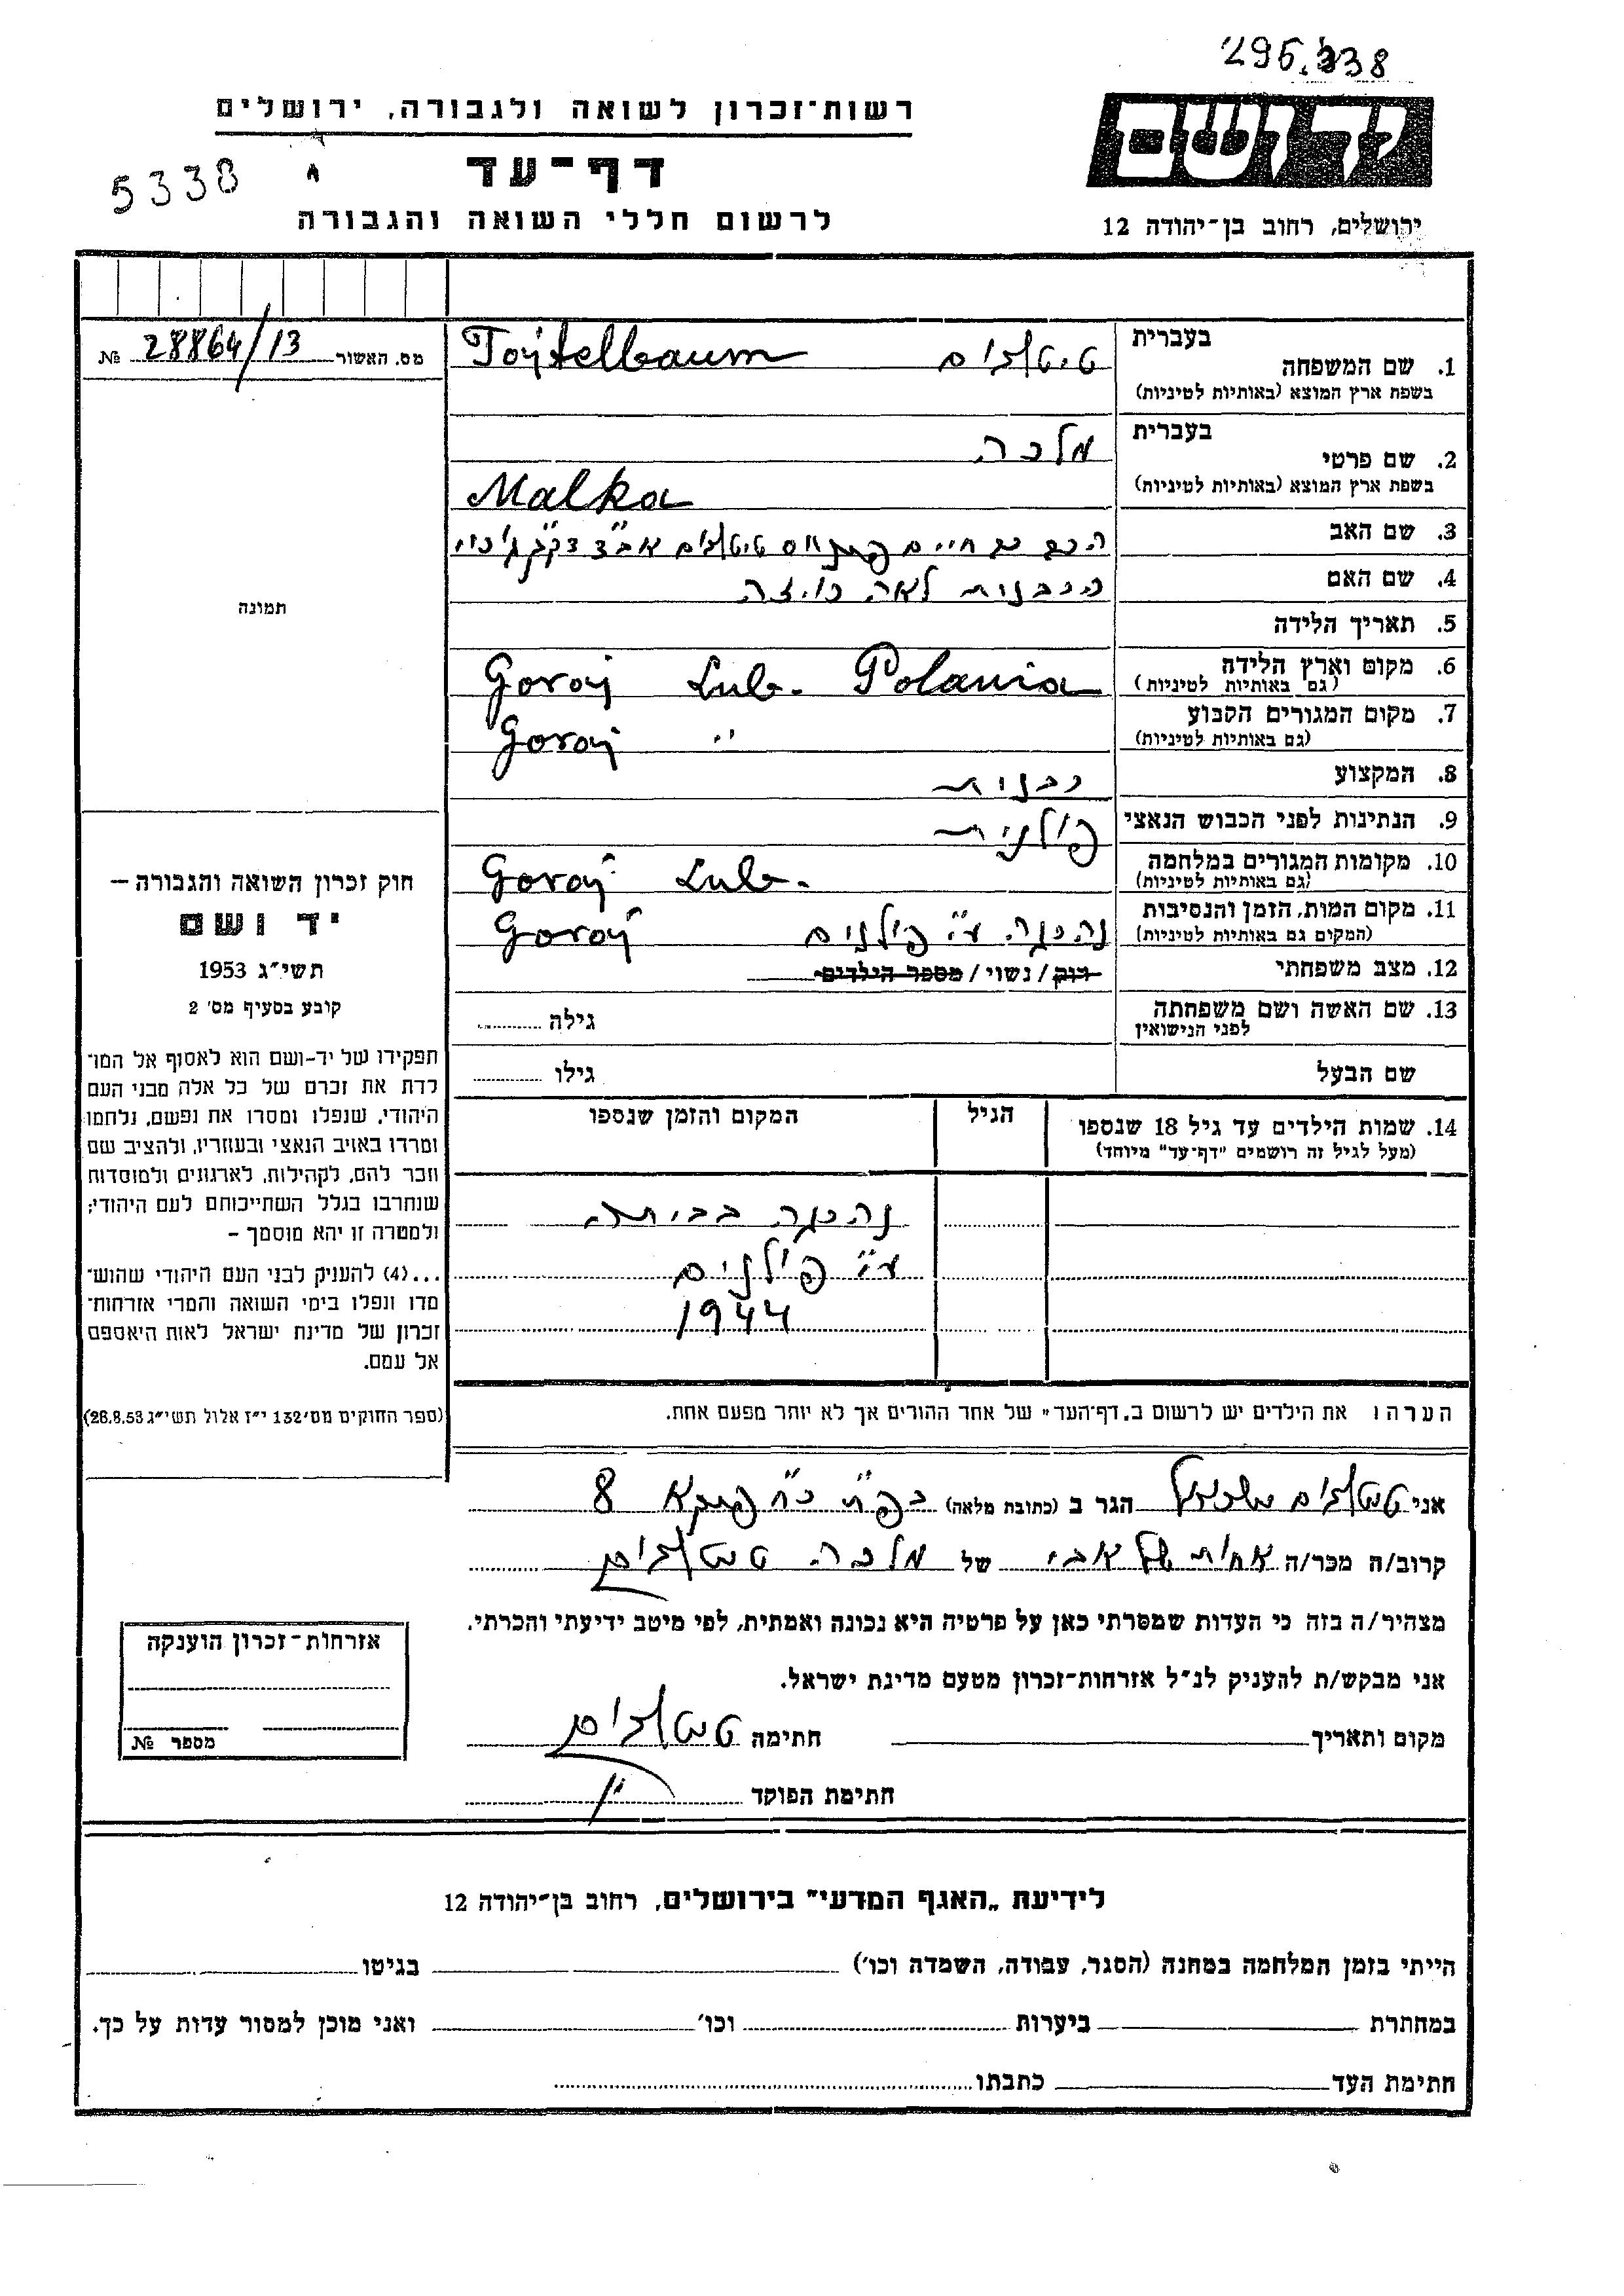 295.338
רשות־זכרון לשואה ולגבורה, ירושלים
יד ושם
5338
דף־עד
לרשום חללי השואה והגבורה
ירושלים, רחוב בן־יהודה 12
מס. האשור 28864/13 №
בעברית
1. שם המשפחה
בשפת ארץ המוצא (באותיות לטיניות)
טיטלבוים Tojtelbaum
בעברית
2. שם פרטי
בשפת ארץ המוצא (באותיות לטיניות)
מלכה
Malka
3. שם האב הרב חיים טיטלבוים אב״ד דק״ק
4. שם האם הרבנית לאה
5. תאריך הלידה
6. מקום וארץ הלידה
(גם באותיות לטיניות)
Goroj Lub. Polania
7. מקום המגורים הקבוע
(גם באותיות לטיניות)
Goroj "
8. המקצוע רבנית
9. הנתינות לפני הכבוש הנאצי פולנית
10. מקומות המגורים במלחמה
(גם באותיות לטיניות)
Goroj Lub.
11. מקום המות, הזמן והנסיבות
(המקום גם באותיות לטיניות)
נהרגה ע״י פולנים Goroj
12. מצב משפחתי רוק / נשוי / מספר הילדים
13. שם האשה ושם משפחתה
לפני הנישואין
גילה
שם הבעל גילו
14. שמות הילדים עד גיל 18 שנספו
(מעל לגיל זה רושמים "דף־עד" מיוחד)
הגיל
המקום והזמן שנספו
נהרגה בביתה
ע״י פולנים
1944
הערה: את הילדים יש לרשום ב„דף־העד" של אחד ההורים אך לא יותר מפעם אחת.
תמונה
חוק זכרון השואה והגבורה —
יד ושם
תשי״ג 1953
קובע בסעיף מס׳ 2
תפקידו של יד-ושם הוא לאסוף אל המו־
לדת את זכרם של כל אלה מבני העם
היהודי, שנפלו ומסרו את נפשם, נלחמו
ומרדו באויב הנאצי ובעוזריו, ולהציב שם
וזכר להם, לקהילות, לארגונים ולמוסדות
שנחרבו בגלל השתייכותם לעם היהודי;
ולמטרה זו יהא מוסמך –
...(4) להעניק לבני העם היהודי שהוש־
מדו ונפלו בימי השואה והמרי אזרחות־
זכרון של מדינת ישראל לאות היאספם
אל עמם.
(ספר החוקים מס׳ 132 י״ז אלול תשי״ג 26.8.53)
אני טיטלבוים הגר ב (כתובת מלאה) 8
קרוב/ה מכר/ה אחות של אבי של מלכה טיטלבוים
מצהיר/ה בזה כי העדות שמסרתי כאן על פרטיה היא נכונה ואמתית, לפי מיטב ידיעתי והכרתי.
אני מבקש/ת להעניק לנ״ל אזרחות-זכרון מטעם מדינת ישראל.
מקום ותאריך חתימה טיטלבוים
חתימת הפוקד
אזרחות-זכרון הוענקה
מספר №
לידיעת „האגף המדעי" בירושלים, רחוב בן־יהודה 12
הייתי בזמן המלחמה במחנה (הסגר, עבודה, השמדה וכו׳) בגיטו
במחתרת ביערות וכו׳ ואני מוכן למסור עדות על כך.
חתימת העד כתבתו